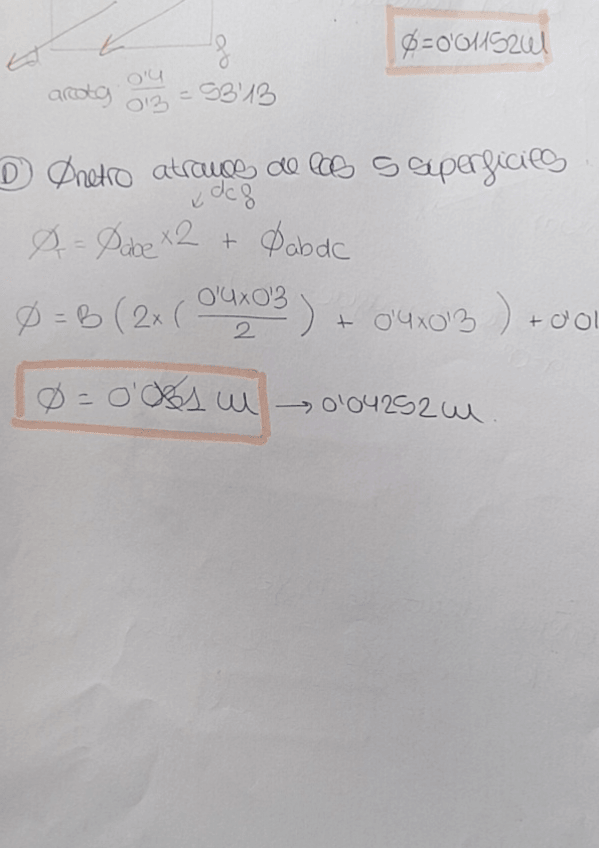 g
ϕ=0'01152W
arcotg 0'4/0'3 = 53'13
D) ϕnetro atraves de las 5 superficies
↙ dcg
ϕT = ϕabe x2 + ϕabdc
ϕ = B (2x (0'4x0'3/2) + 0'4x0'3) + 0'01
ϕ = 0'031 W → 0'04252W.